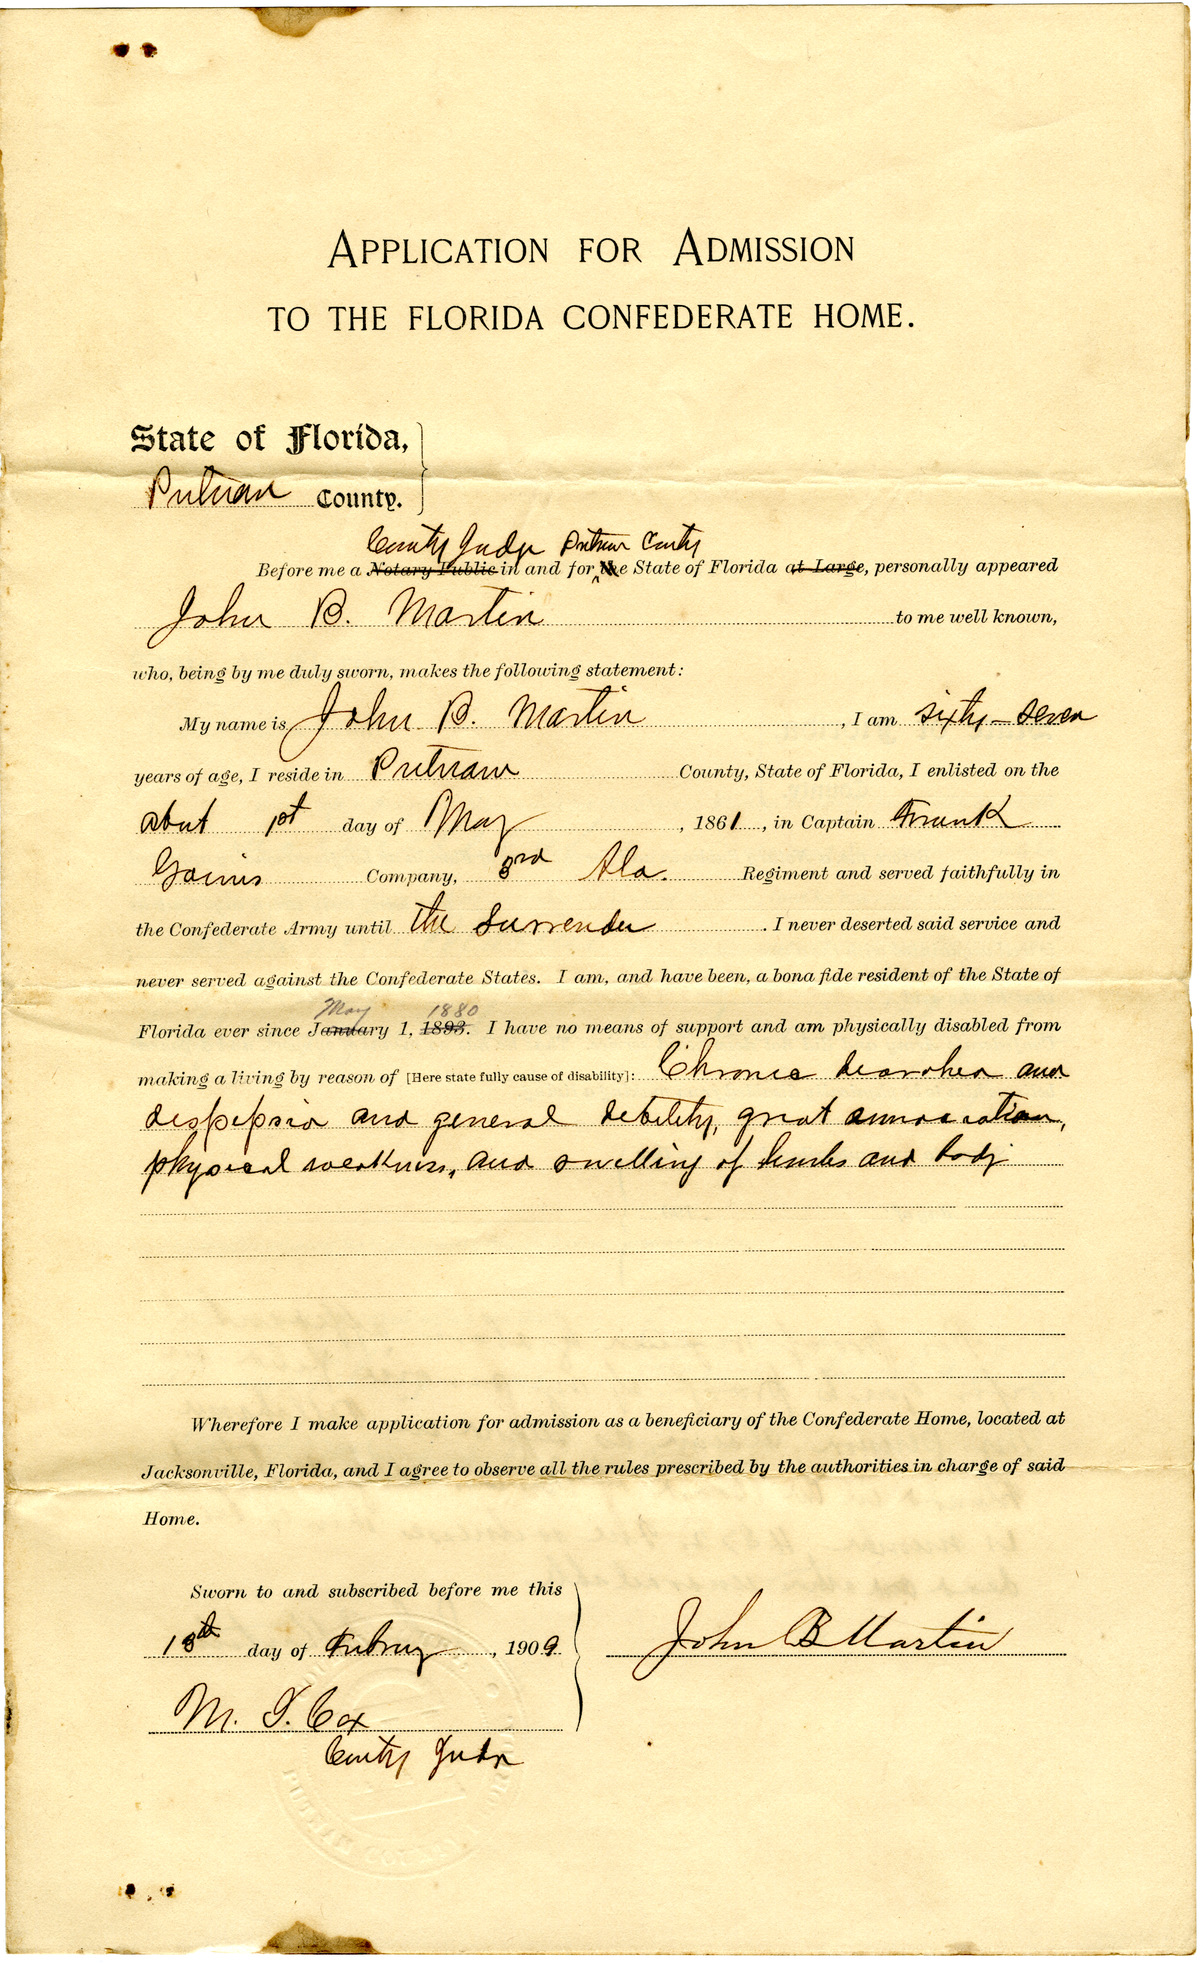 APPLICATION FOR ADMISSION
TO THE FLORIDA CONFEDERATE HOME.
State of Florida,
Putnam County.
County Judge Putnam County
Before me a Notary Public in and for the State of Florida at Large, personally appeared
John B. Martin to me well known,
who, being by me duly sworn, makes the following statement:
My name is John B. Martin, I am sixty-seven
years of age, I reside in Putnam County, State of Florida, I enlisted on the
about 1st day of May, 1861, in Captain Frank
Gaines Company, 3rd Ala. Regiment and served faithfully in
the Confederate Army until the Surrender. I never deserted said service and
never served against the Confederate States. I am, and have been, a bona fide resident of the State of
May 1880
Florida ever since January 1, 1893. I have no means of support and am physically disabled from
making a living by reason of [Here state fully cause of disability]: Chronic and
and general debility, great
physical weakness, and swelling of limbs and body
Wherefore I make application for admission as a beneficiary of the Confederate Home, located at
Jacksonville, Florida, and I agree to observe all the rules prescribed by the authorities in charge of said
Home.
Sworn to and subscribed before me this
18th day of February, 1909
John B Martin
M. I. Cox
County Judge